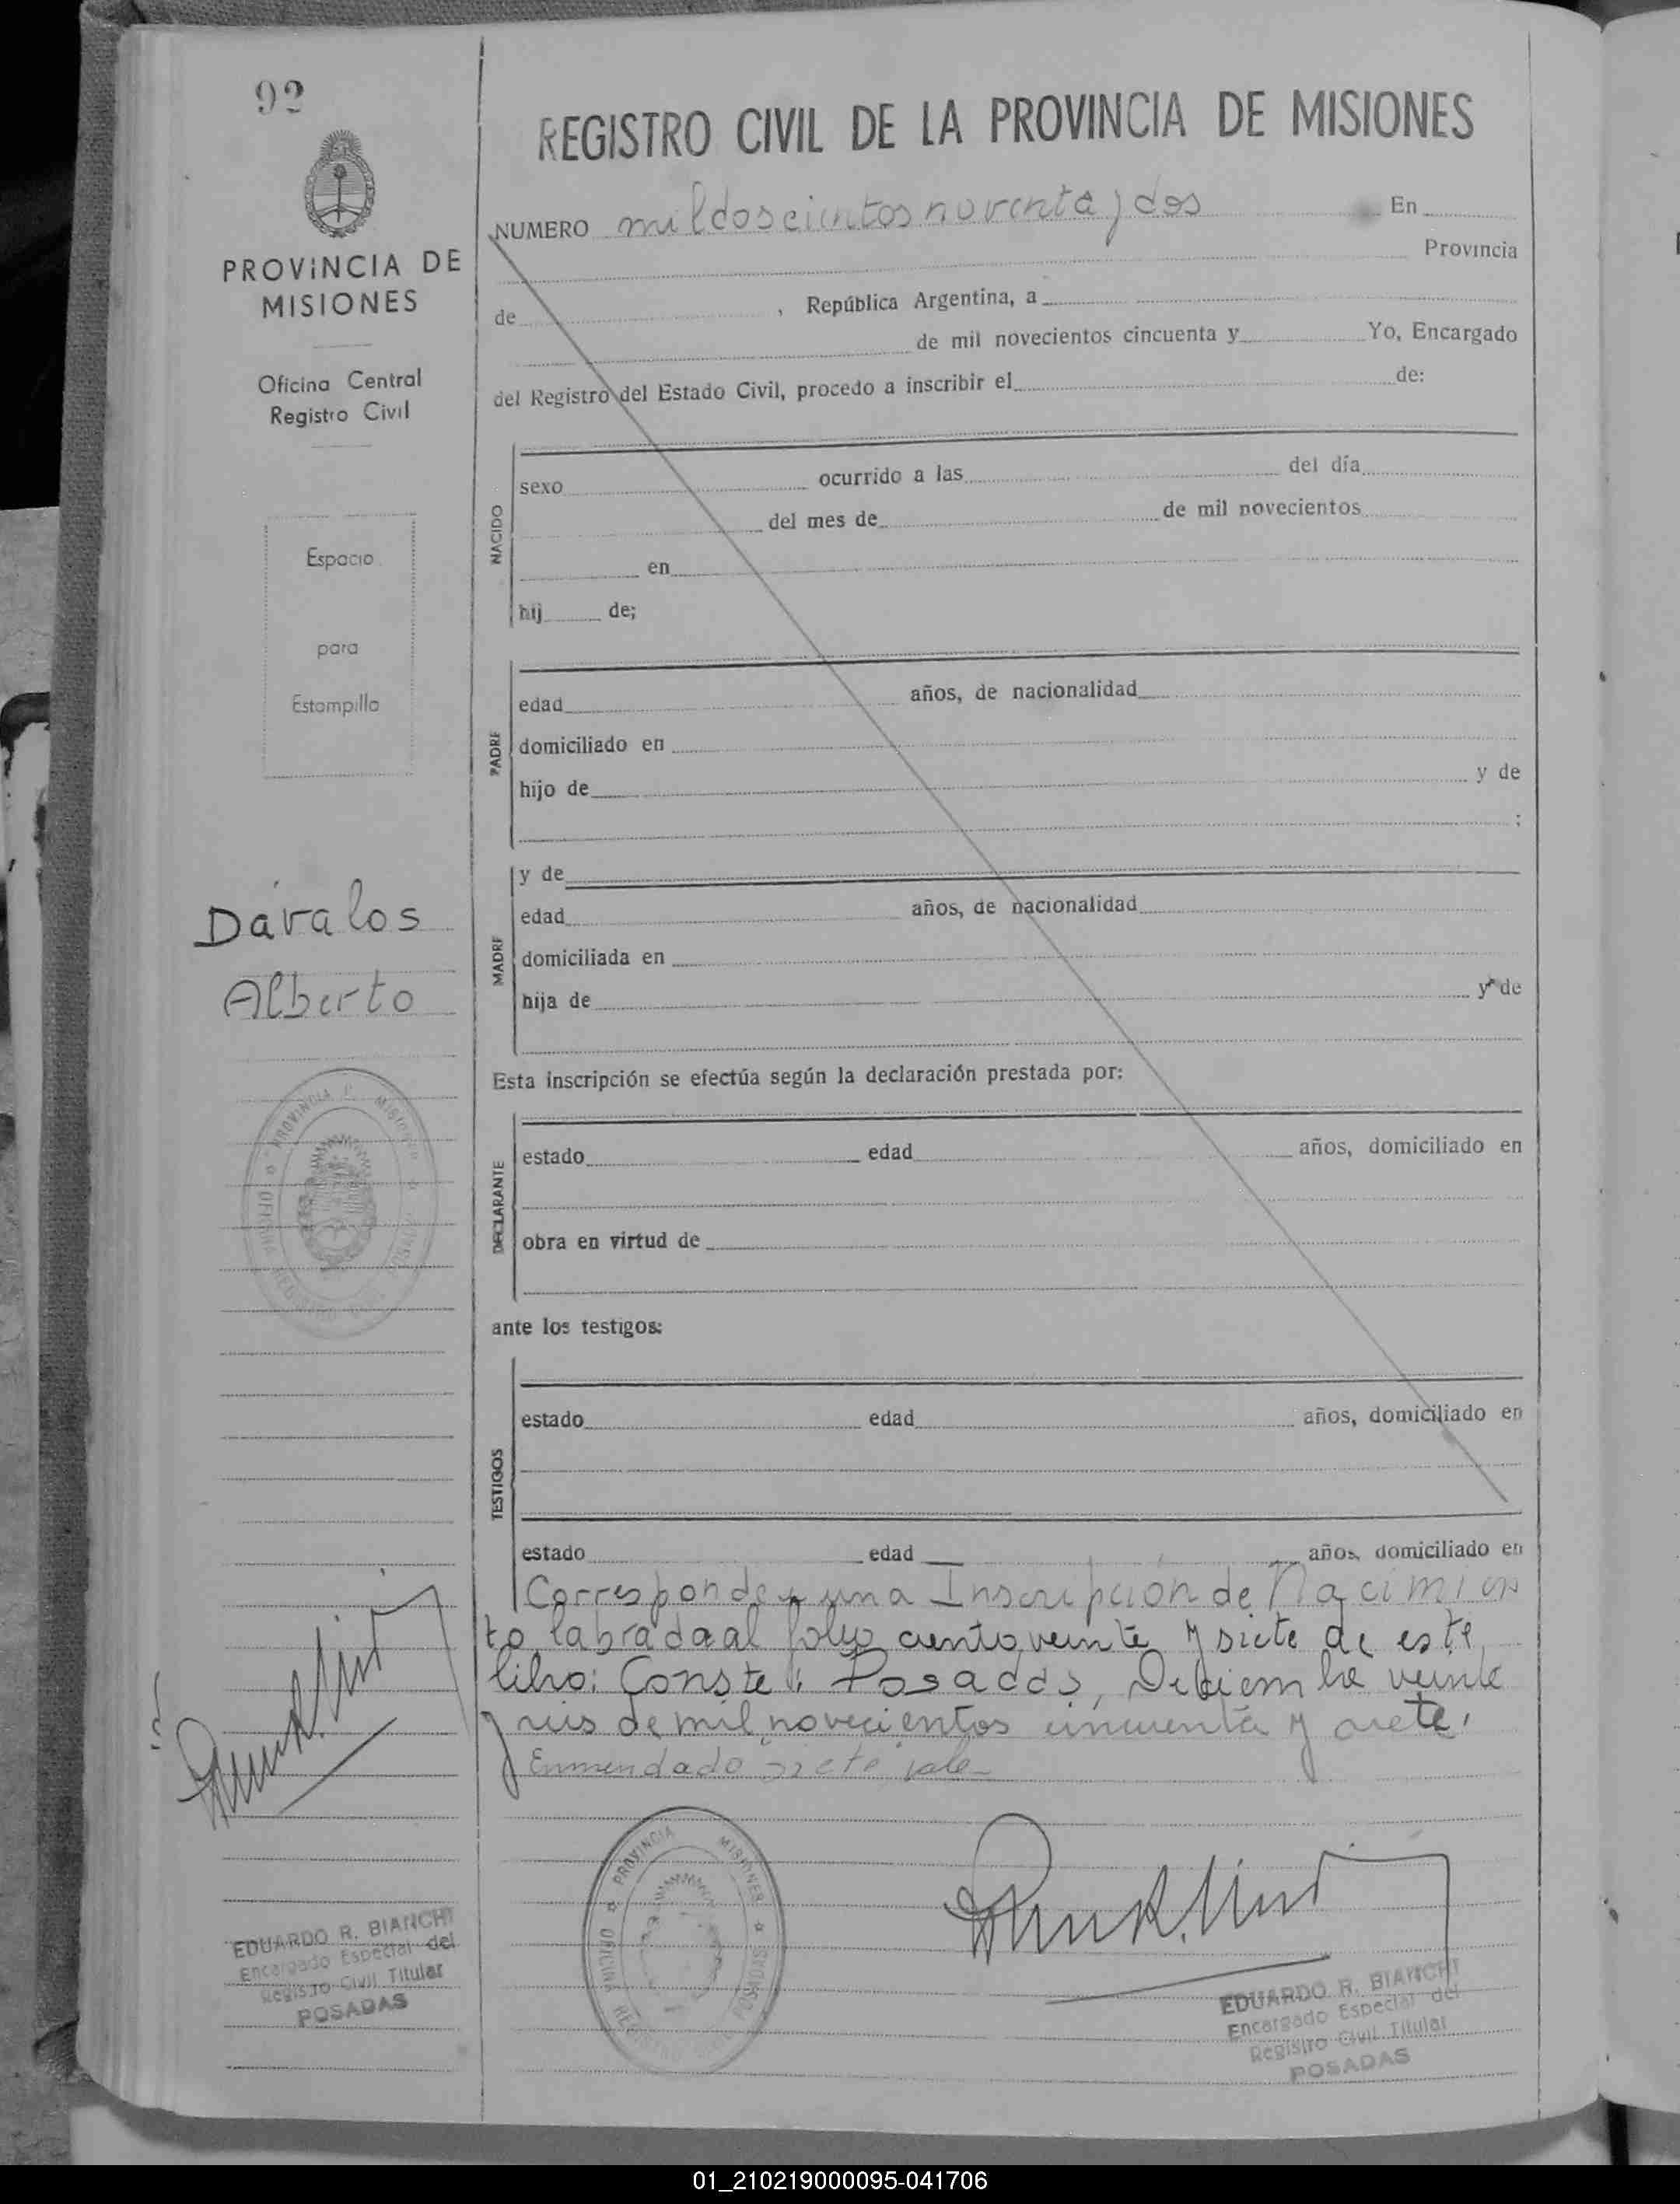 92
PROVINCIA DE
MISIONES
Oficina Central
Registro Civil
Espacio
para
Estampilla
Dávalos
Alberto
PROVINCIA MISIONES
OFICINA REGISTRO
EDUARDO R. BIANCHI
Encargado Especial del
Registro Civil Titular
POSADAS
REGISTRO CIVIL DE LA PROVINCIA DE MISIONES
NUMERO mil doscientos noventa y dos En
Provincia
de , República Argentina, a
de mil novecientos cincuenta y Yo, Encargado
del Registro del Estado Civil, procedo a inscribir el de:
NACIDO
sexo ocurrido a las del día
del mes de de mil novecientos
en
hij de;
PADRE
edad años, de nacionalidad
domiciliado en
hijo de y de
;
MADRE
y de
edad años, de nacionalidad
domiciliada en
hija de y de
Esta inscripción se efectúa según la declaración prestada por:
DECLARANTE
estado edad años, domiciliado en
obra en virtud de
ante los testigos:
TESTIGOS
estado edad años, domiciliado en
estado edad años, domiciliado en
Corresponde a una Inscripción de Nacimien
to labrada al folio ciento veinte y siete de este
libro: Conste: Posadas, Diciembre veinte
y seis de mil novecientos cincuenta y siete.
Enmendado siete vale
PROVINCIA MISIONES
OFICINA REGISTRO CIVIL POSADAS
EDUARDO R. BIANCHI
Encargado Especial del
Registro Civil Titular
POSADAS
01_210219000095-041706